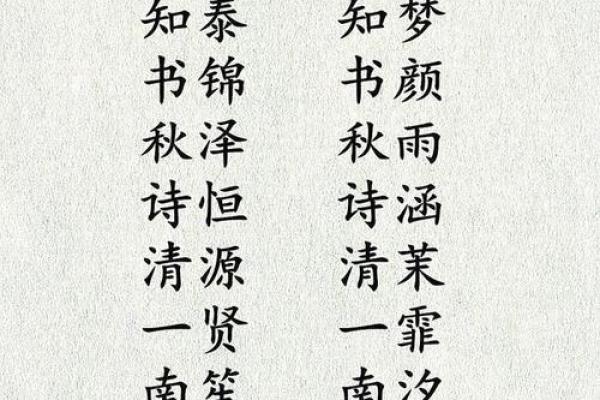 知泰 知梦
书锦 书颜
秋泽 秋雨
诗恒 诗涵
清源 清茉
一贤 一霏
南笙 南汐